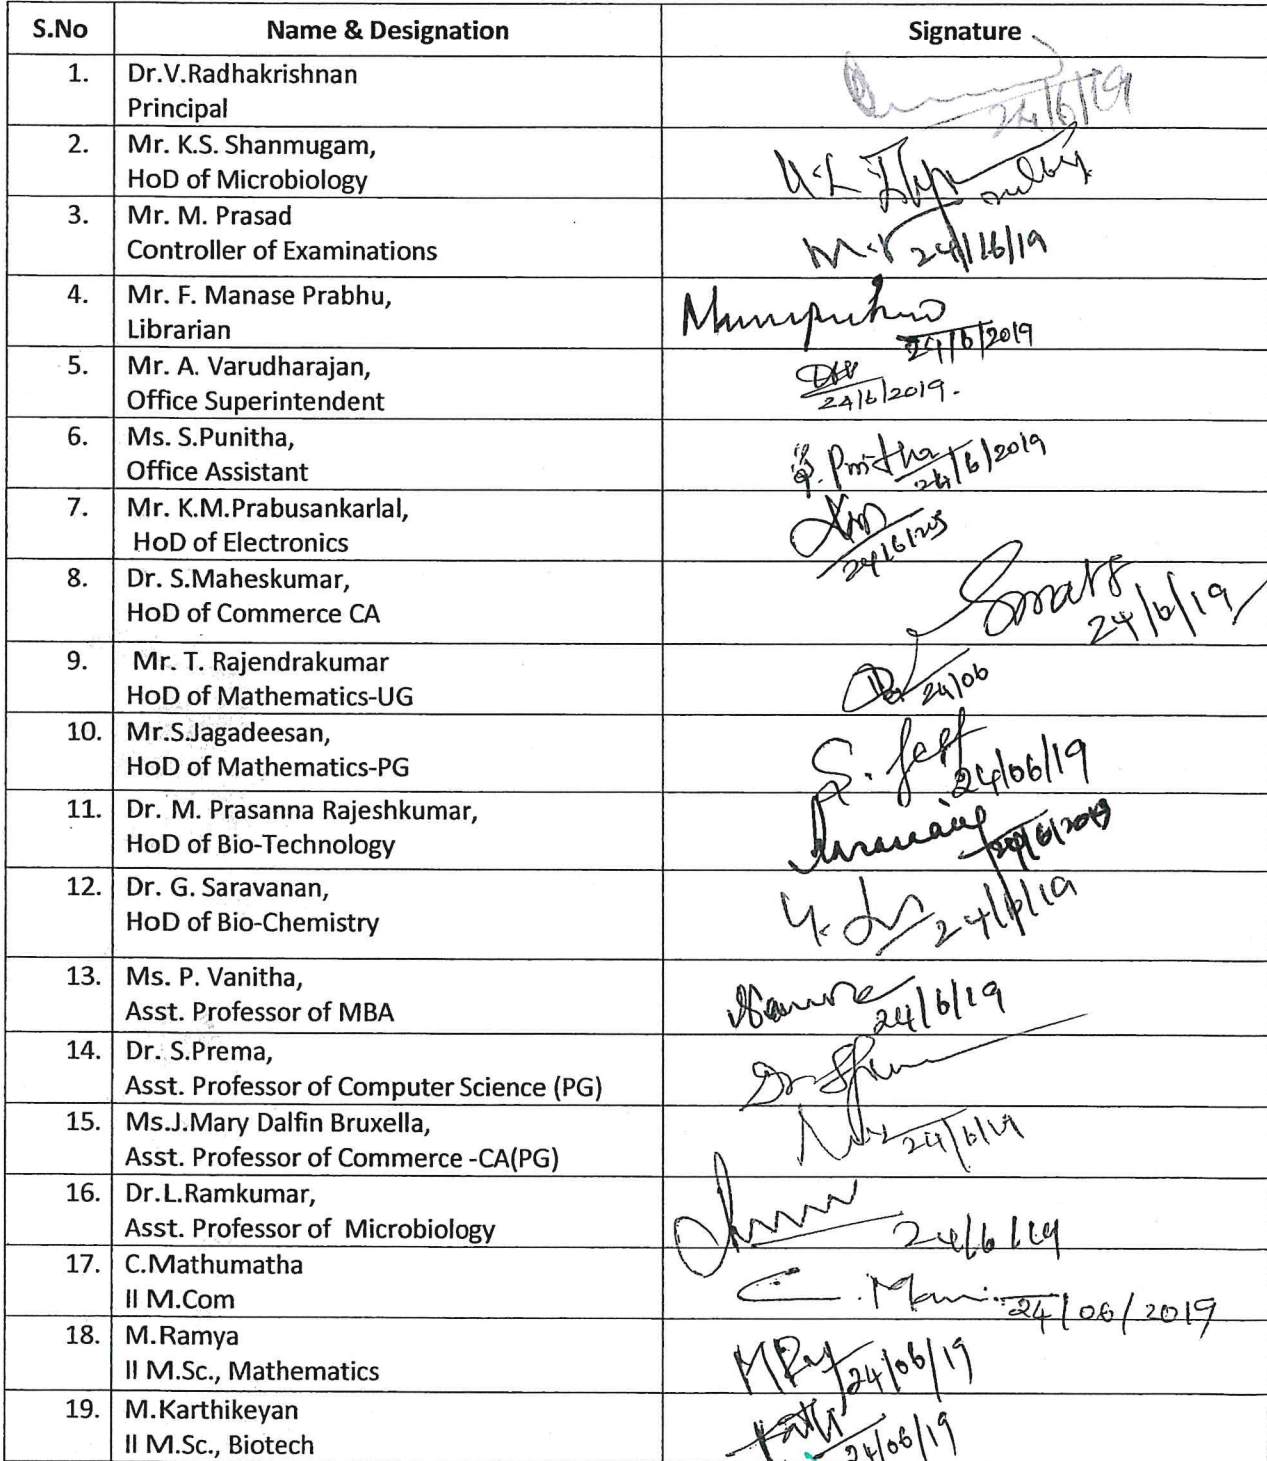 S.No Name & Designation Signature
1. Dr.V.Radhakrishnan
Principal
24/6/19
2. Mr. K.S. Shanmugam,
HoD of Microbiology
3. Mr. M. Prasad
Controller of Examinations
24/16/19
4. Mr. F. Manase Prabhu,
Librarian
24/6/2019
5. Mr. A. Varudharajan,
Office Superintendent
24/6/2019.
6. Ms. S.Punitha,
Office Assistant
24/6/2019
7. Mr. K.M.Prabusankarlal,
HoD of Electronics
8. Dr. S.Maheskumar,
HoD of Commerce CA
24/6/19
9. Mr. T. Rajendrakumar
HoD of Mathematics-UG
24/06
10. Mr.S.Jagadeesan,
HoD of Mathematics-PG
24/06/19
11. Dr. M. Prasanna Rajeshkumar,
HoD of Bio-Technology
24/6/2019
12. Dr. G. Saravanan,
HoD of Bio-Chemistry
24/6/19
13. Ms. P. Vanitha,
Asst. Professor of MBA
24/6/19
14. Dr. S.Prema,
Asst. Professor of Computer Science (PG)
15. Ms.J.Mary Dalfin Bruxella,
Asst. Professor of Commerce -CA(PG)
24/6/19
16. Dr.L.Ramkumar,
Asst. Professor of Microbiology
24/6/19
17. C.Mathumatha
II M.Com
24/06/2019
18. M.Ramya
II M.Sc., Mathematics
24/06/19
19. M.Karthikeyan
II M.Sc., Biotech
24/06/19